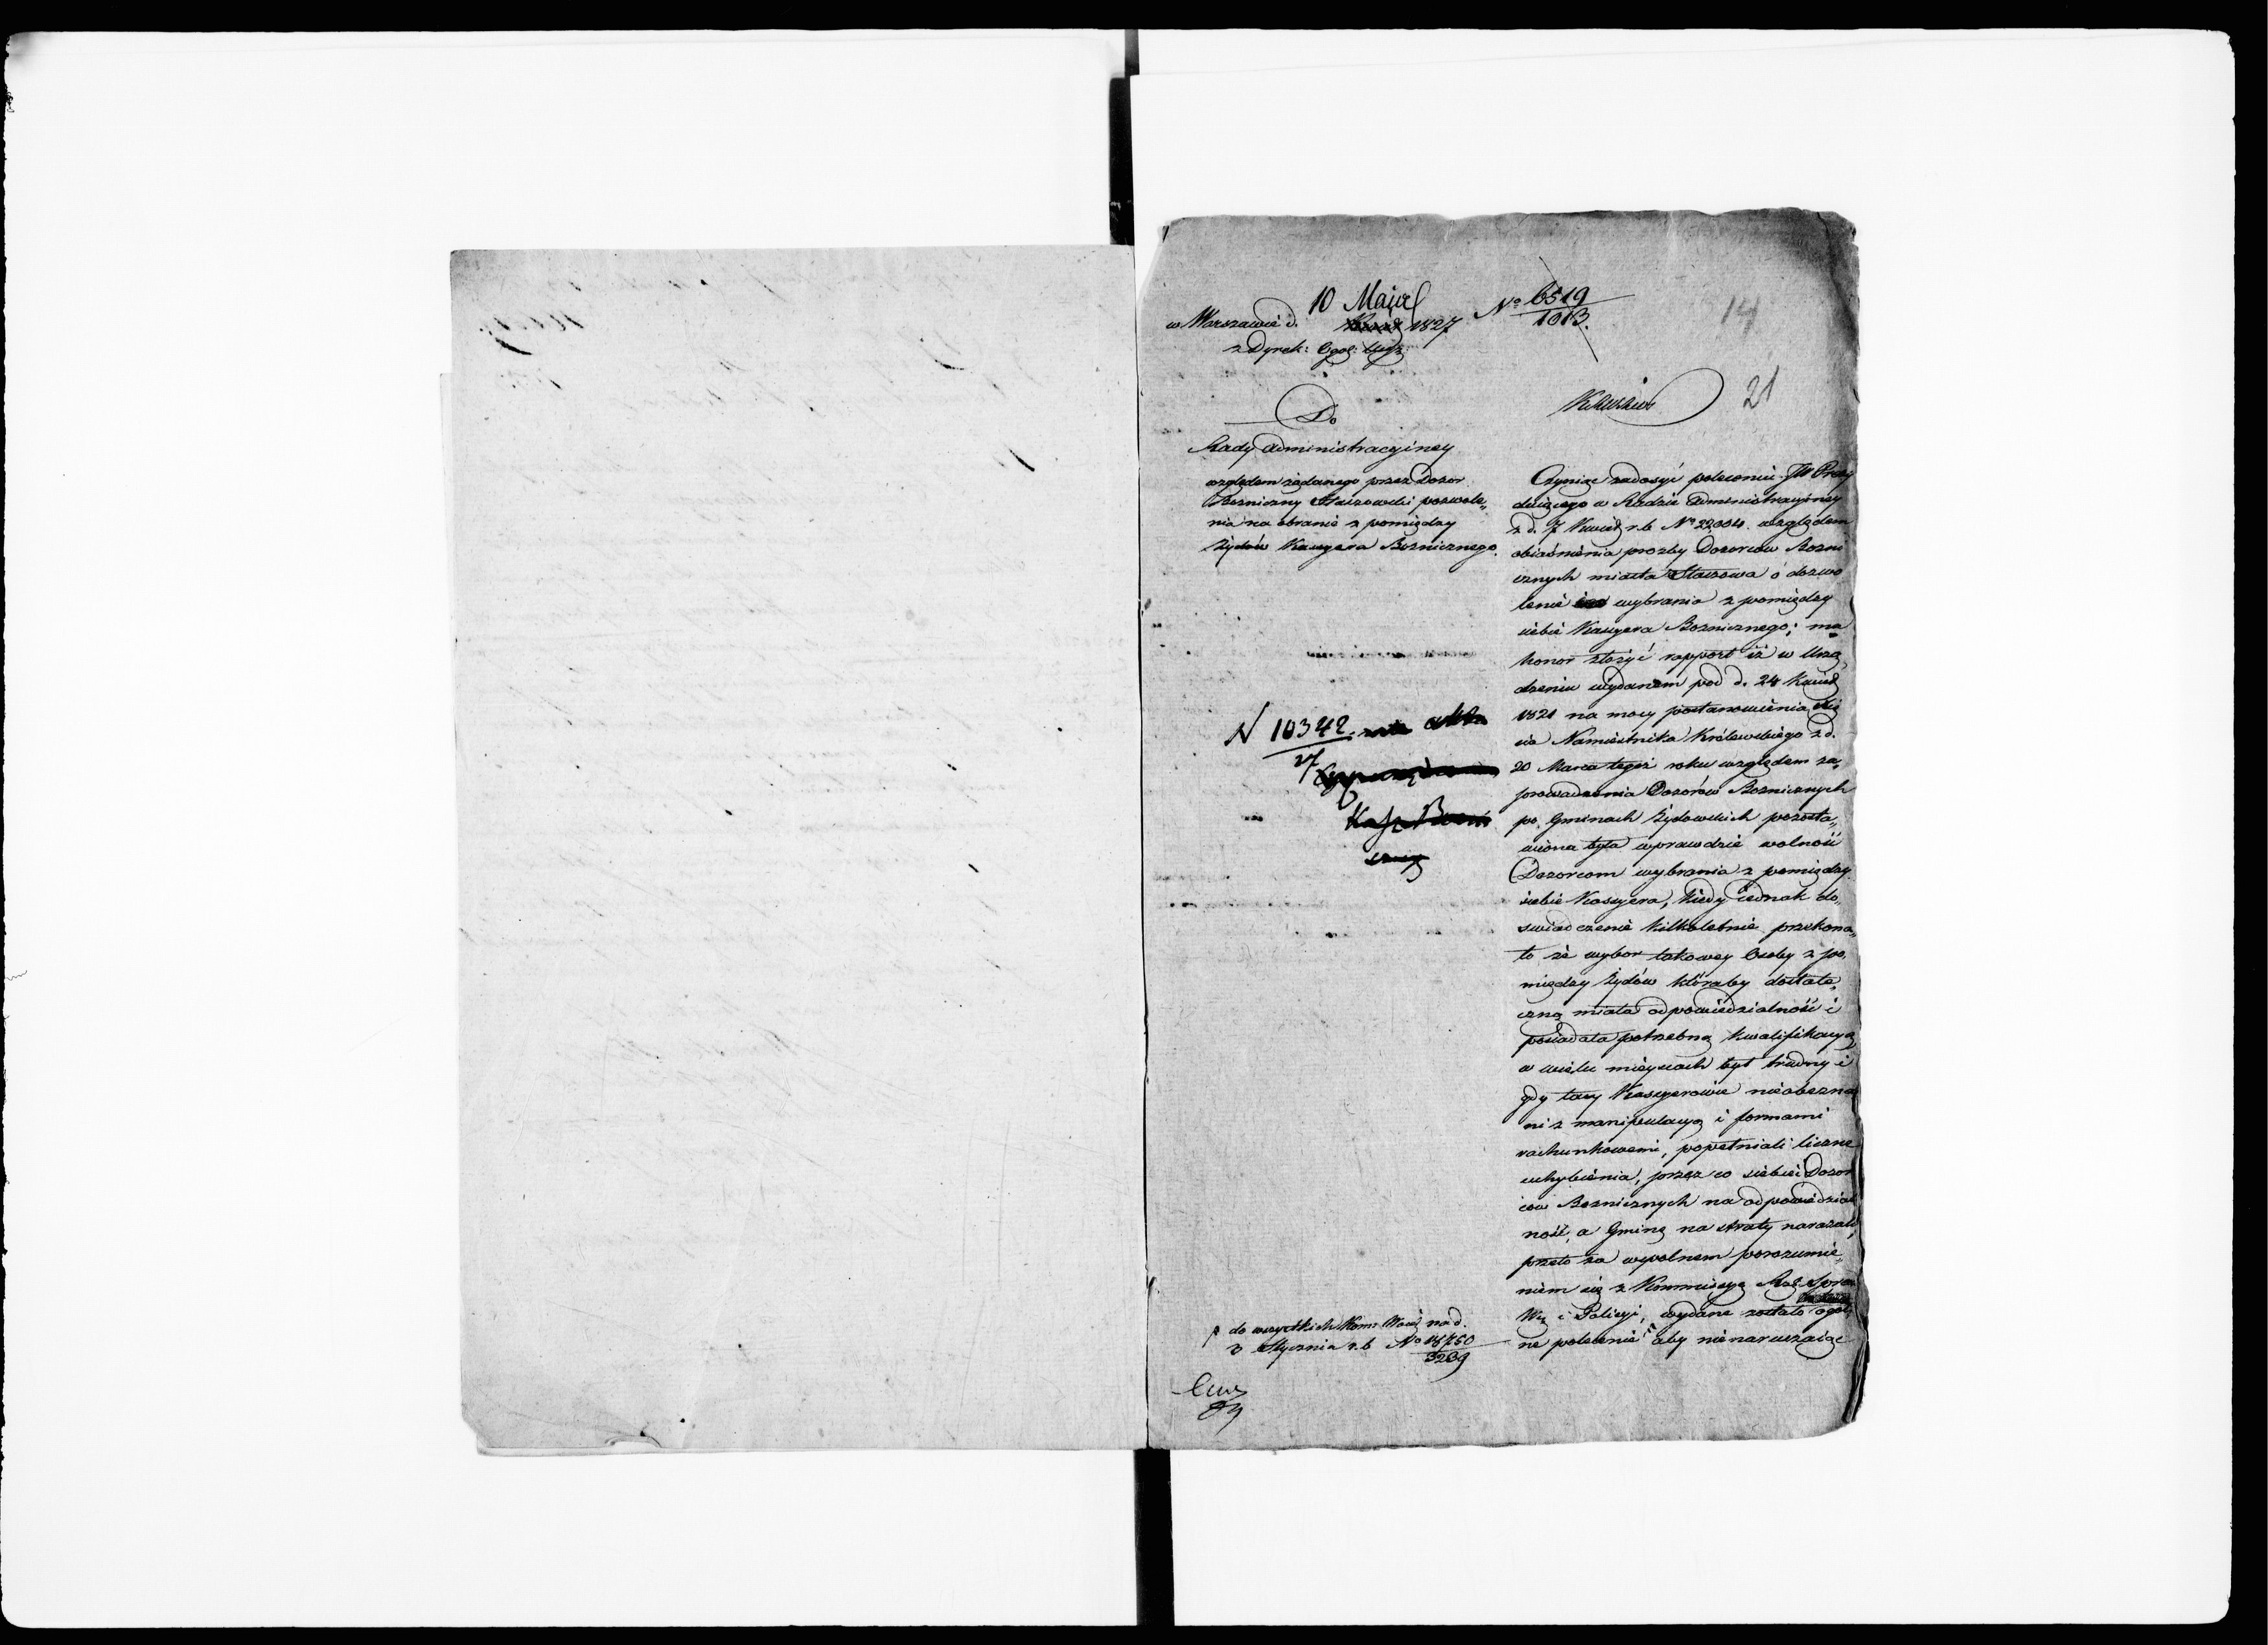 10 Maja
w Warszawie d. 1827
z Dyrek: Ogól:
No 6519/1013.
14
21
Do
Rady Administracyiney
względem żądanego przez Dozor
Bożniczny Staszowski pozwole„
nia na obranie z pomiędzy
Żydów Kassyera Bożnicznego.
N 10342
27
Czyniąc zadosyć poleceniu JW Prezy
duiącego w Radzie Administracyiney
z d. 7 Kwiet r.b. No 22004. względem
obiaśnienia prozby Dozorców Bożni
cznych miasta Staszowa o dozwo
lenie wybrania z pomiędzy
siebie Kassyera Bożnicznego; ma
honor złożyć rapport iż w Urzą„
dzeniu wydanem pod d. 24 Kwiet
1821 na mocy postanowienia Xię
cia Namiestnika Królewskiego z d.
20 Marca tegoż roku względem za„
prowadzenia Dozorów Bożnicznych
po Gminach Żydowskich pozosta„
wiona była wprawdzie wolność
Dozorcom wybrania z pomiędzy
siebie Kassyera, kiedy iednak do„
swiadczenie kilkoletnie przekona„
ło że wybor takowey Osoby z po„
między Żydów któraby dostate„
czną miała odpowiedzialność i
posiadała potrzebną kwalifikacyą
w wielu mieyscach był trudny i
gdy tacy Kassyerowie nieobezna
ni z manipulacyą i formami
rachunkowemi, popełniali liczne
uchybienia, przez co siebie i Dozor
ców Bożnicznych na odpowiedzial
ność, a Gminę na straty narażali,
przeto za wspolnem porozumie„
niem się z Kommissyą Rząd. Spraw
We i Policyi, wydane zostało ogól
ne polecenie aby nienaruszaiąc
do wszystkich Kom: Woiew: na d.
3 Stycznia r.b. No 18750/3239